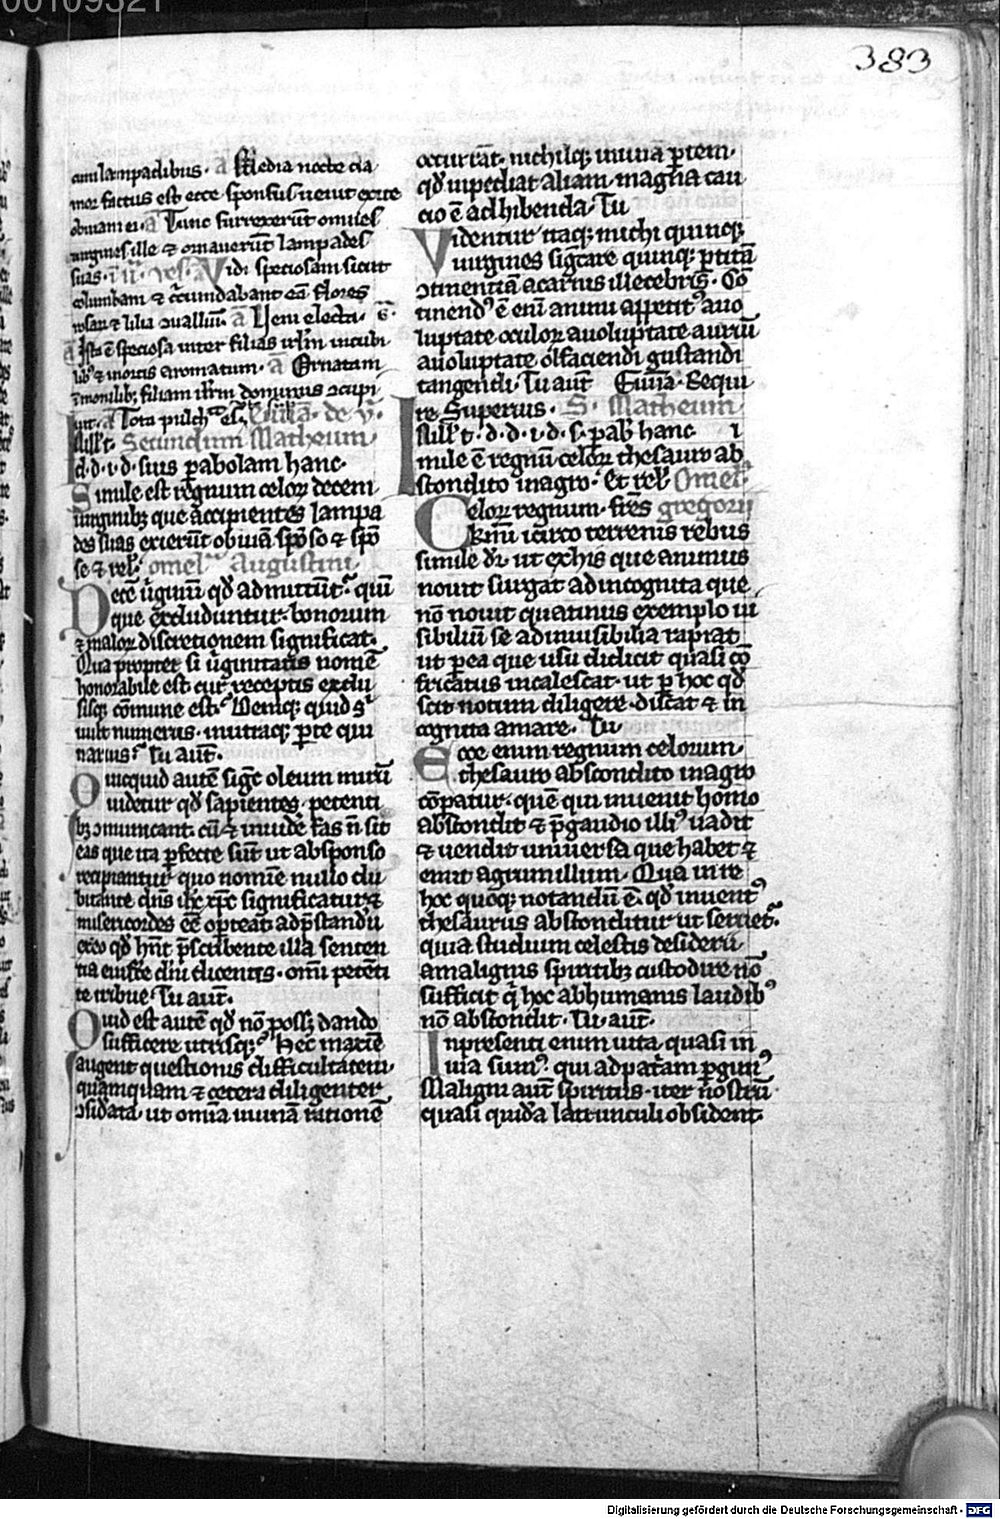 383
cum lampadibus. a Media nocte cla
mor factus est ecce sponsus uenit exite
obuiam ei. a Tunc surrexerūt omnes
uirgines ille ⁊ ornauerūt lampades
suas. Vidi speciosam sicut
columbam ⁊ c̄cundabant eā flores
rosaꝝ ⁊ lilia ꝯualliū. a Veni electa.
a Ista ē speciosa inter filias irl̄m
aromatum. a Ornatam
ī monilibꝫ filiam irl̄m dominus ꝯcupi
uit. a Tota pulch̄
Secundum Matheum.
d. d. i. d. suis ꝑabolam hanc.
Simile est regnum celoꝝ decem
uirginibꝫ que accipientes lampa
des suas exierūt obuiā spōso ⁊ spō
se ⁊ rel̄. omel Augustini.
Decē ūginū qd̄ admittūt. quī
que excluduntur. bonorum
⁊ maloꝝ discretionem significat.
Qua propter si ūginitatis nomē
honorabile est cur receptis exclu
sisqꝫ cōmune est. Deniqꝫ quid sͥ
uult numerus. in utraqꝫ ꝑte qui
narius. Tu aūt.
Quicquid autē sigc̄ oleum mirū
uidetur qd̄ sapientes petenti
bꝫ ꝯmunicant. cū ⁊ inuidē fas ñ sit
eas que ita ꝑfecte sūt ut absponso
recipiantur quo nomīe nullo du
bitante dn̄s ih̄c xp̄c significatur. ⁊
misericordes eē oꝑteat ad p̄standū
qd̄ hn̄t p̄scribente illa senten
tia eiusdē dnī dicentis. omī petēti
te tribue. Tu aūt.
Quid est autē qd̄ nō possꝫ dando
sufficere utrisqꝫ. Hec maxīe
augent questionis difficultatem.
quamquam ⁊ cetera diligenter
ꝯsidata. ut omīa in unā rationē
occurrāt. nichilqꝫ in una ꝑtem.
qd̄ inpediat aliam. magna cau
cio ē adhibenda. Tu
Videntur itaqꝫ michi quinqꝫ
uirgines sigcare quinqꝫ ꝑtitā
ꝯtinentiā a carnis illecebris. Cō
tinendꝰ ē enī animi appetitꝰ a uo
luptate oculoꝝ a uoluptate auriū
a uoluptate olfaciendi gustandi
tangendi. Tu aūt Sequi
te Superius. S. Matheum
Iɴ ill̄ t. d. d. i. d. s. ꝑab̄ hanc
mile ē regnū celoꝝ thesauro ab
scondito in agro. Et rel̄. Omel
Celoꝝ regnum. fr̄es gregorii
kr̄mi icirco terrenis rebus
simile dr̄. ut ex his que animus
nouit surgat ad incognita que
nō nouit quatinus exemplo ui
sibiliū se ad inuisibilia rapiat
ut ꝑ ea que usu didicit quasi cō
fricatus incalescat. ut ꝑ hoc qd̄
scit notum diligere. discat ⁊ in
cognita amare. Tu.
Ecce enim regnum celorum.
thesauro abscondito in agro
cōpatur. quē qui inuenit homo
abscondit ⁊ p̄ gaudio illiꝰ uadit
⁊ uendit uniuersa que habet ⁊
emit agrum illum. Qua in re
hoc quoqꝫ notandū ē. qd̄ inuentꝰ
thesaurus absconditur ut seruetͬ.
quia studium celestis desiderii.
a malignis spiritibꝫ custodire nō
sufficit. q̄ hoc ab humanis laudibꝰ
nō abscondit. Tu aūt.
In presenti enim uita. quasi in
uia sumꝰ. qui ad pat̄am pgimꝰ.
Maligni aūt spiritus. iter n̄ostrū
quasi quidā latrunculi obsident.
Digitalisierung gefördert durch die Deutsche Forschungsgemeinschaft - DFG